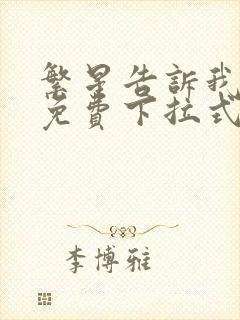 繁星告訴我
免費下拉式
李博雅